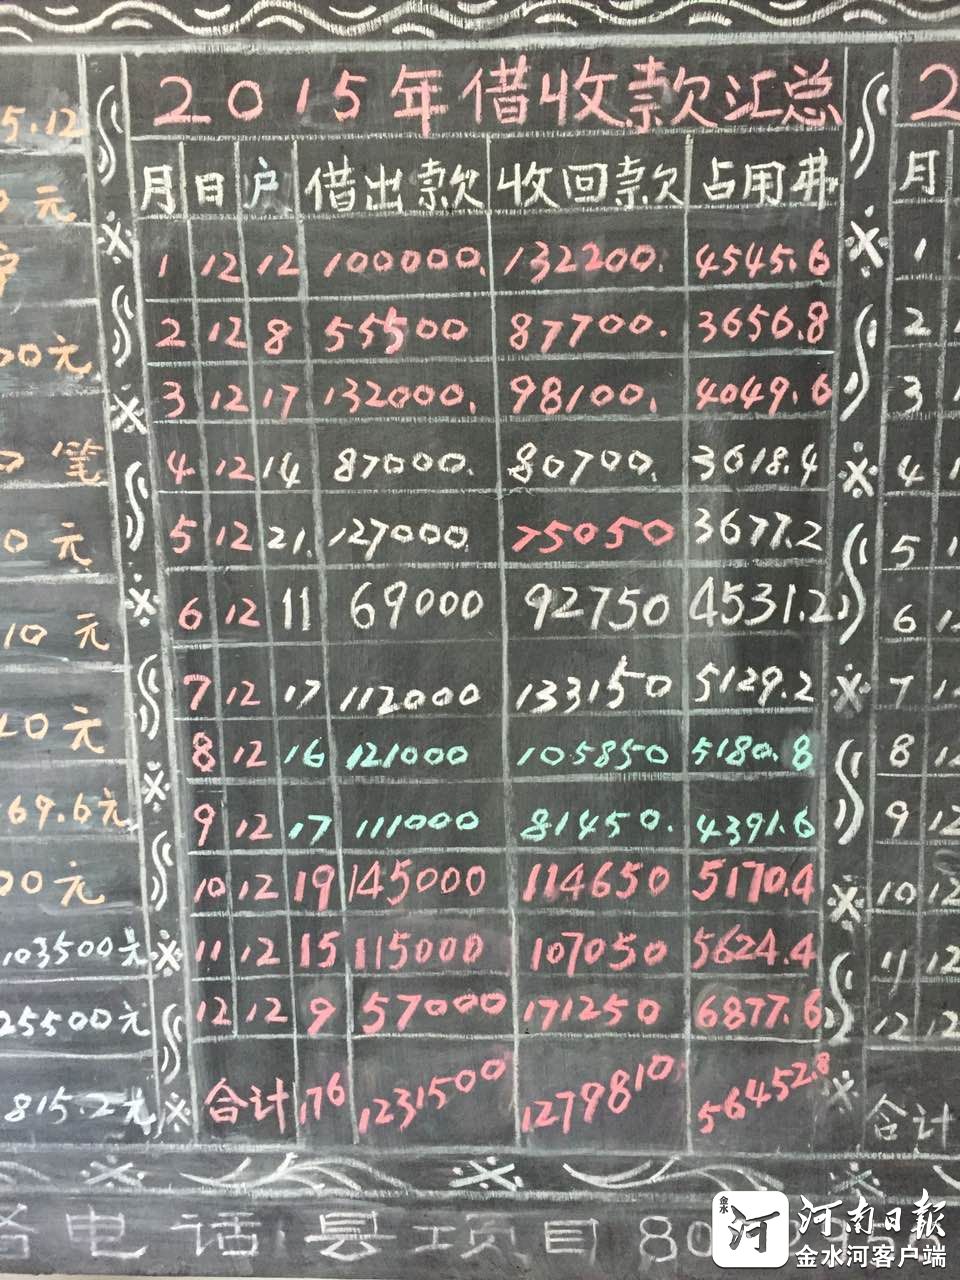 2015年借收款汇总
月 日 户 借出款 收回款 占用费
1 12 12 100000. 132200. 4545.6
2 12 8 55500 87700. 3656.8
3 12 17 132000. 98100. 4049.6
4 12 14 87000. 80700. 3618.4
5 12 21. 127000. 75050 3677.2
6 12 11 69000 92750 4531.2
7 12 17 112000 133150 5129.2
8 12 16 121000 105850 5180.8
9 12 17 111000 81450. 4391.6
10 12 19 145000 114650 5170.4
11 12 15 115000 107050 5624.4
12 12 9 57000 171250 6877.6
合计 176 1231500 1279810 56452.8
5.12
0元
00元
0笔
0元
10元
40元
69.6元
00元
103500元
25500元
815.2元
2
月
1
2
3
4
5
6
7
8
9
10 12
11 12
12 12
合计
电话县项目80
金水河
河南日报
金水河客户端